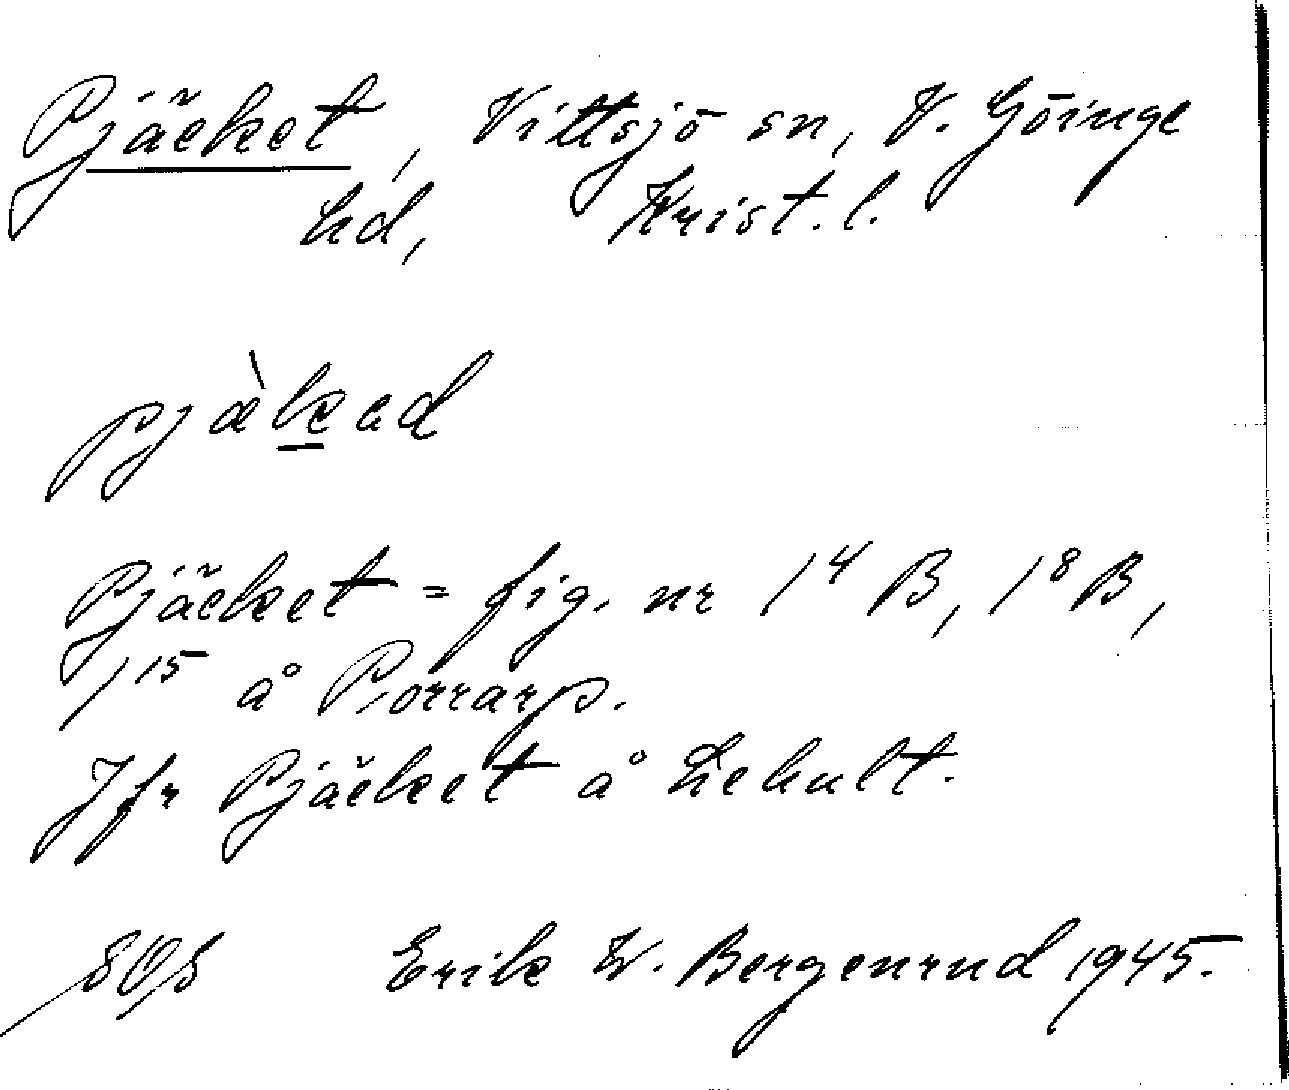 Pjäcket, Vittsjö sn, V. Göinge
hd, Krist. l.
pjæ̀kad
Pjäcket = fig. nr 1⁴ B, 1⁸ B,
1¹⁵ å Porrarp.
Jfr Pjäcket å Lehult.
Erik W. Bergenrud 1945.